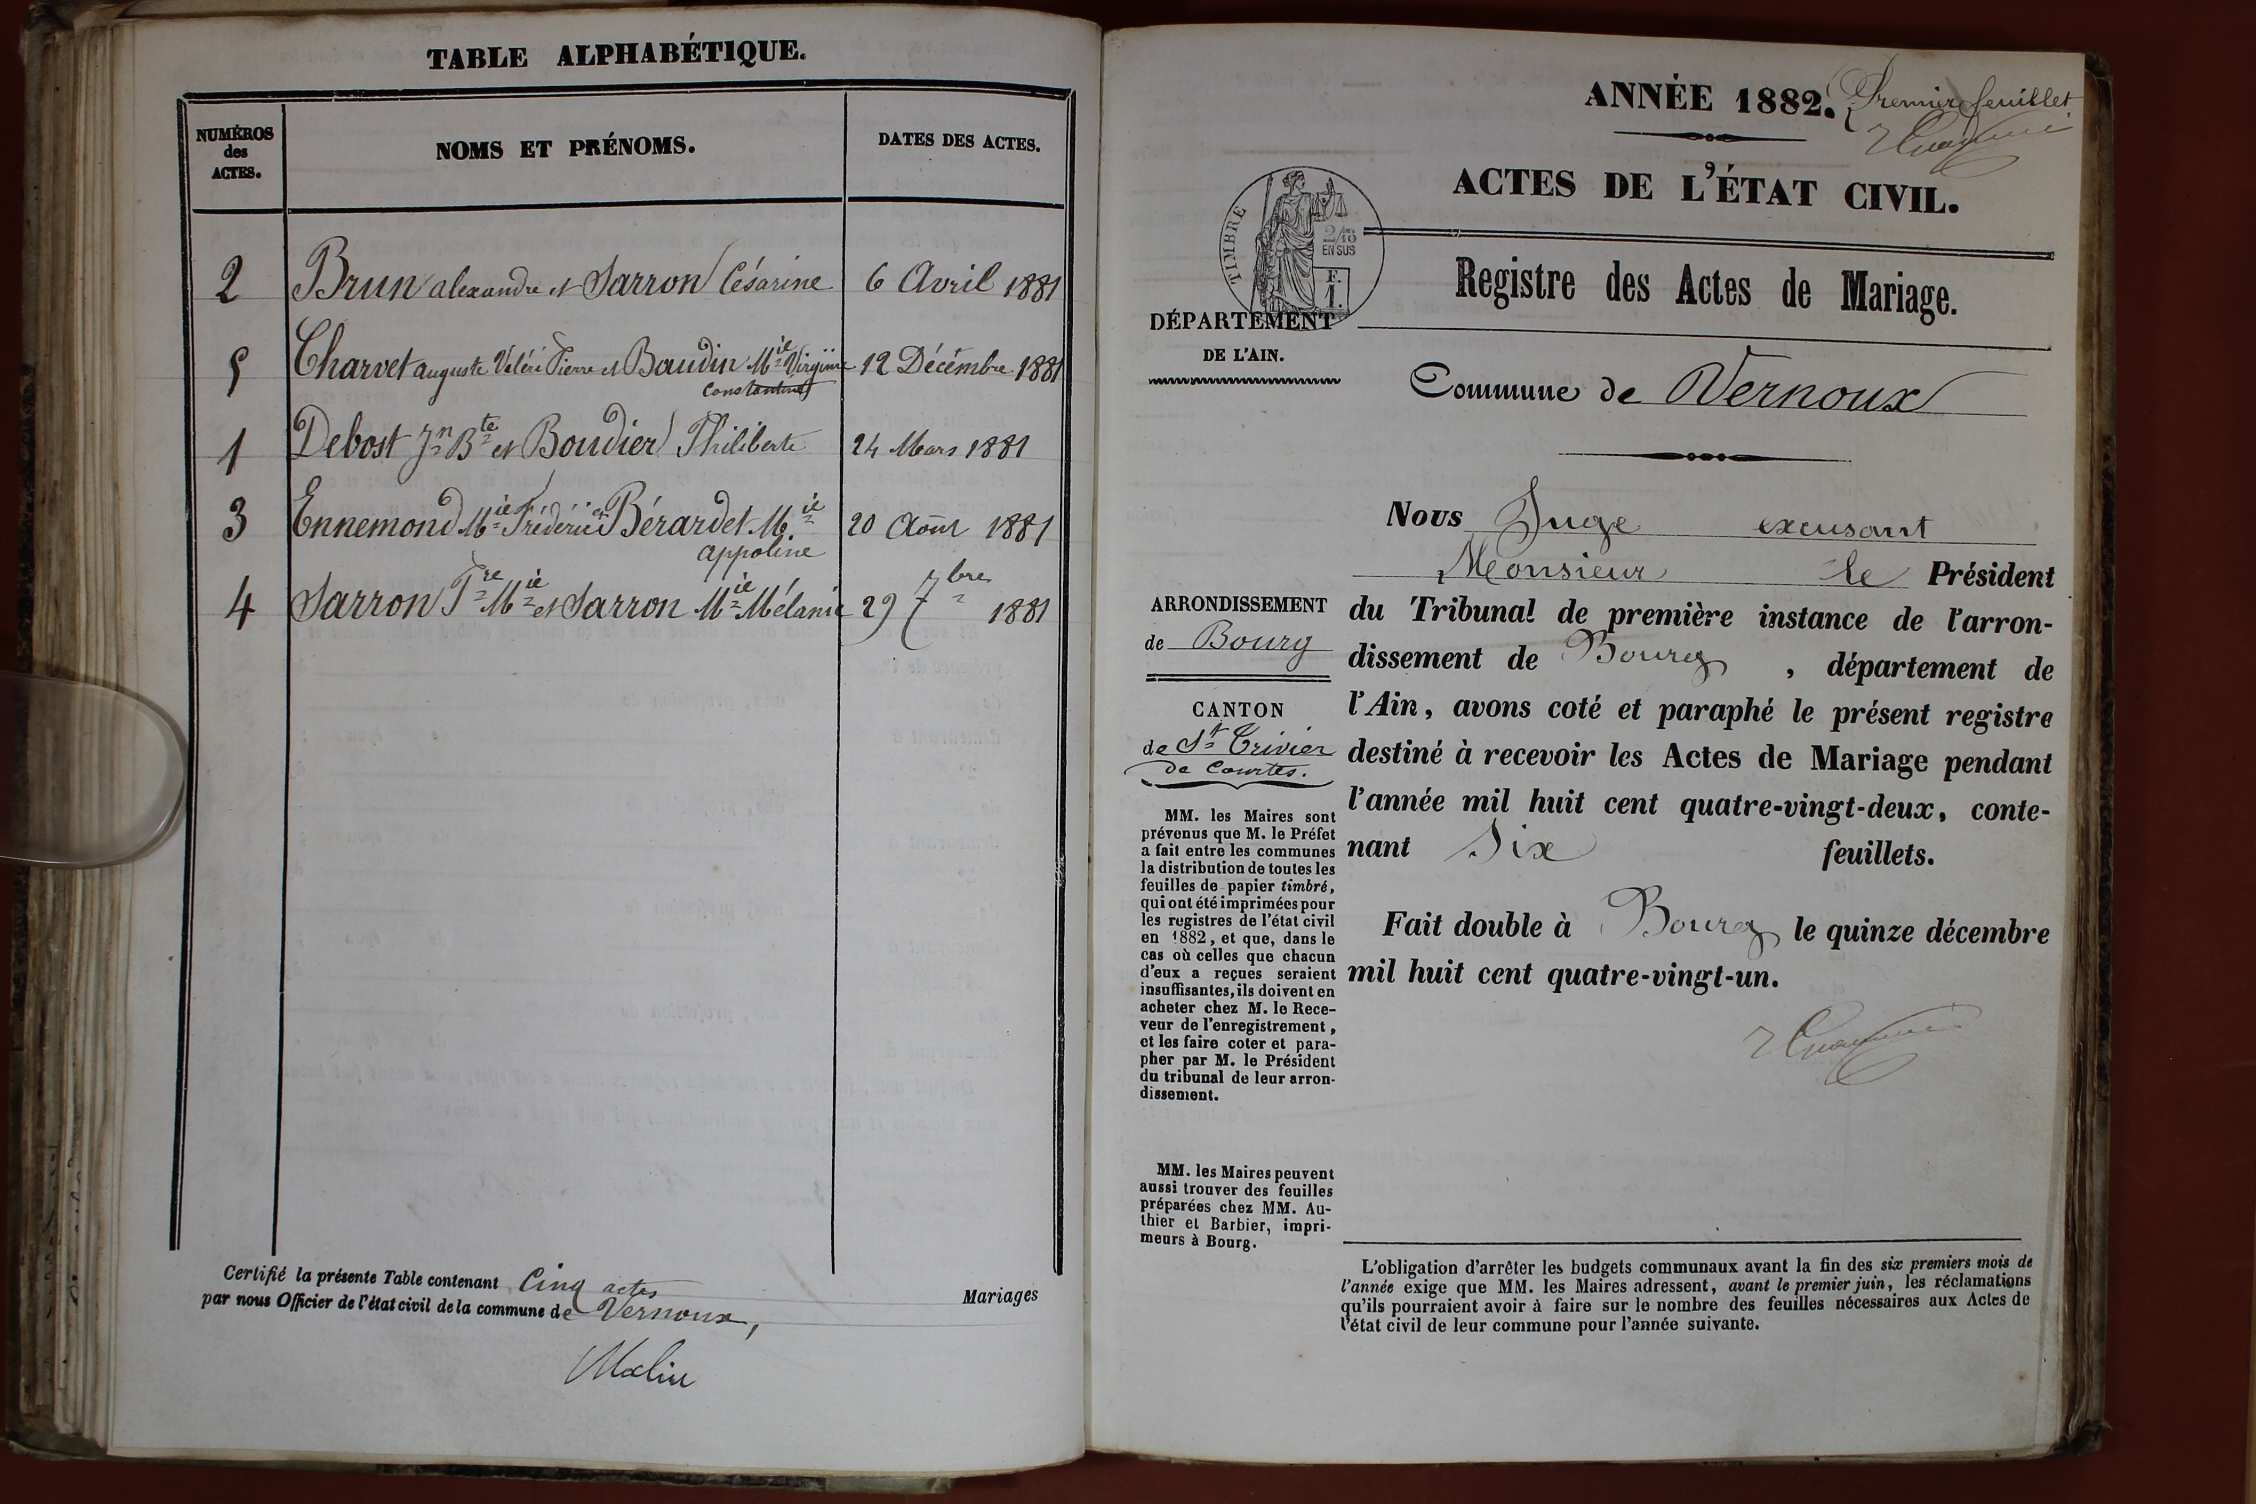 TABLE ALPHABÉTIQUE.
NUMÉROS des ACTES.
NOMS ET PRÉNOMS.
DATES DES ACTES.
2 Brun alexandre et Sarron Césarine 6 Avril 1881
5 Charvet auguste Valéri Pierre et Baudin Mie Virginie 12 Décembre 1881
Constantine
1 Debost Jn Bte et Boudier Philiberte 24 Mars 1881
3 Ennemond Mie Frédéric et Bérardet Mie 20 Août 1881
appoline
4 Sarron Pre Mie et Sarron Mie Mélanie 29 7bre 1881
Certifié la présente Table contenant Cinq actes Mariages
par nous Officier de l'état civil de la commune de Vernoux,
ANNÉE 1882.
Premier feuillet
ACTES DE L'ÉTAT CIVIL.
TIMBRE
2/10
EN SUS
F.
1.
Registre des Actes de Mariage.
DÉPARTEMENT
DE L'AIN.
Commune de Vernoux
Nous Juge excusant
Monsieur le Président
du Tribunal de première instance de l'arron-
dissement de Bourg, département de
l'Ain, avons coté et paraphé le présent registre
destiné à recevoir les Actes de Mariage pendant
l'année mil huit cent quatre-vingt-deux, conte-
nant Six feuillets.
Fait double à Bourg le quinze décembre
mil huit cent quatre-vingt-un.
ARRONDISSEMENT
de Bourg
CANTON
de St Trivier
de Courtes.
MM. les Maires sont
prévenus que M. le Préfet
a fait entre les communes
la distribution de toutes les
feuilles de papier timbré,
qui ont été imprimées pour
les registres de l'état civil
en 1882, et que, dans le
cas où celles que chacun
d'eux a reçues seraient
insuffisantes, ils doivent en
acheter chez M. le Rece-
veur de l'enregistrement,
et les faire coter et para-
pher par M. le Président
du tribunal de leur arron-
dissement.
MM. les Maires peuvent
aussi trouver des feuilles
préparées chez MM. Au-
thier et Barbier, impri-
meurs à Bourg.
L'obligation d'arrêter les budgets communaux avant la fin des six premiers mois de
l'année exige que MM. les Maires adressent, avant le premier juin, les réclamations
qu'ils pourraient avoir à faire sur le nombre des feuilles nécessaires aux Actes de
l'état civil de leur commune pour l'année suivante.